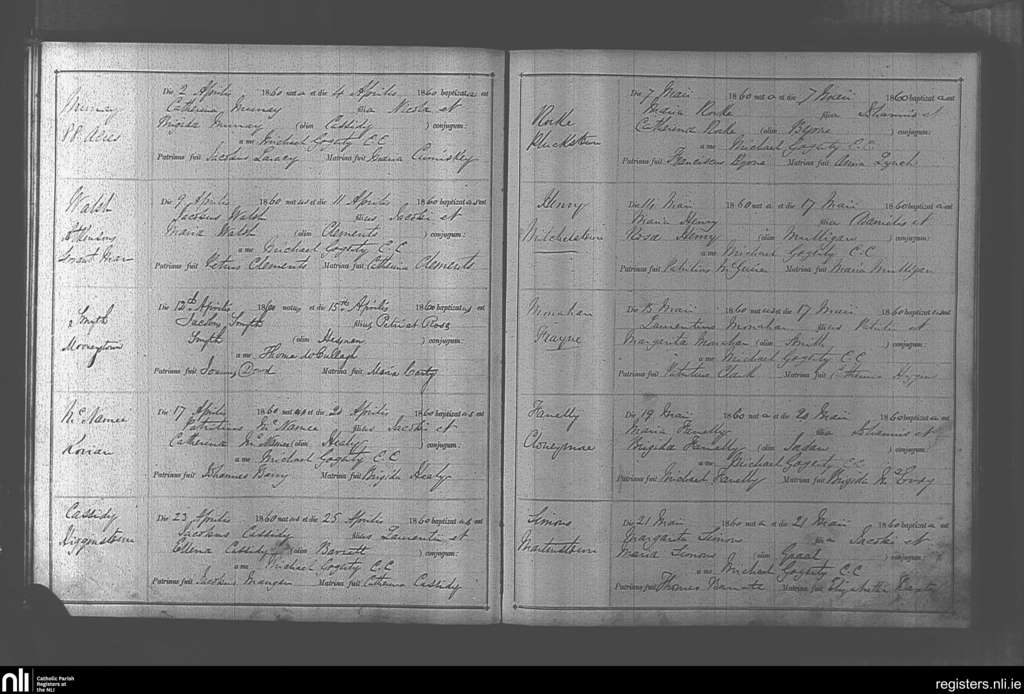 Murray
Die 2 Aprilis 1860 nat a et die 4 Aprilis 1860 baptizat a est
Catherina Murray filia Nicola et
Brigida Murray (olim Cassidy ) conjugum:
a me Michael Gogarty C.C
Patrinus fuit Jacobus Matrina fuit Maria Cumiskey
Walsh
Die 9 Aprilis 1860 nat us et die 11 Aprilis 1860 baptizat us est
Jacobus Walsh filius Jacobi et
Maria Walsh (olim Clements ) conjugum:
a me Michael Gogarty C.C
Patrinus fuit Petrus Clements Matrina fuit Catherina Clements
Smyth
Mooneytown
Die 12th Aprilis 1860 nat us et die 15th Aprilis 1860 baptizat us est
Smyth filius Petri et Rosa
Smyth (olim Heynan ) conjugum:
a me Thoma McCullagh
Patrinus fuit Dowd Matrina fuit Maria Carty
Mc Namee
Die 17 Aprilis 1860 nat us et die 20 Aprilis 1860 baptizat us est
Patritius Mc Namee filius Jacobi et
Catherina Mc Namee (olim Healy ) conjugum:
a me Michael Gogarty C.C
Patrinus fuit Johannes Barry Matrina fuit Brigida Healy
Cassidy
Higginstown
Die 23 Aprilis 1860 nat us et die 25 Aprilis 1860 baptizat us est
Jacobus Cassidy filius Laurentii et
Elena Cassidy (olim Barrett ) conjugum:
a me Michael Gogarty C.C
Patrinus fuit Jacobus Mangan Matrina fuit Catherina Cassidy
Rorke
Pluckstown
Die 7 Maii 1860 nat a et die 7 Maii 1860 baptizat a est
Maria Rorke filia Johannis et
Catherina Rorke (olim Byrne ) conjugum:
a me Michael Gogarty C.C
Patrinus fuit Franciscus Byrne Matrina fuit Anna Lynch
Henry
Mitchelstown
Die 14 Maii 1860 nat a et die 17 Maii 1860 baptizat a est
Maria Henry filia Danielis et
Rosa Henry (olim Mulligan ) conjugum:
a me Michael Gogarty C.C
Patrinus fuit Patritius McGuire Matrina fuit Maria Mulligan
Monahan
Frayne
Die 15 Maii 1860 nat us et die 17 Maii 1860 baptizat us est
Laurentius Monahan filius Patritii et
Margarita Monahan (olim Smith ) conjugum:
a me Michael Gogarty C.C
Patrinus fuit Patritius Clark Matrina fuit Catherina Higgins
Farrelly
Die 19 Maii 1860 nat a et die 20 Maii 1860 baptizat a est
Maria Farrelly filia Johannis et
Brigida Farrelly (olim ) conjugum:
a me Michael Gogarty C.C
Patrinus fuit Michael Farrelly Matrina fuit Brigida
Simons
Martinstown
Die 21 Maii 1860 nat a et die 21 Maii 1860 baptizat a est
Margarita Simons filia Jacobi et
Maria Simons (olim ) conjugum:
a me Michael Gogarty C.C
Patrinus fuit Thomas Matrina fuit Elizabetha
nli Catholic Parish
Registers at
the NLI
registers.nli.ie